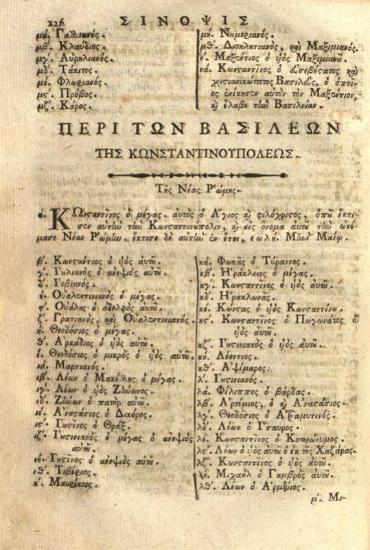 226 ΣΙΝΟΨΙΣ
μά. Γαλλιανός.
μβ. Κλαύδιος.
μγ. Αὐρηλιανός.
μδ. Τάκιτος.
μέ. Φλωριανός.
μς. Πρόβος.
μζ. Κάρος.
μη. Νημεριανός.
μθ. Διοκλητιανός, καὶ Μαξιμιανός.
ν. Μαξέντιος ὁ ἱὸς Μαξιμιανοῦ.
νά. Κωνσταντῖνος ὁ εὐσεβέστατος καὶ
χριστιανικώτατος Βασιλεὺς, ὁ ὁποῖ-
ος ἐνίκησεν αὐτὸν τὸν Μαξέντιον,
κ̀ ἔλαβε τὴν Βασιλείαν.
ΠΕΡΙ ΤΩΝ ΒΑΣΙΛΕΩΝ
ΤΗΣ ΚΩΝΣΤΑΝΤΙΝΟΥΠΟΛΕΩΣ.
Τῆς Νέας Ῥώμης.
ά. ΚΩνσαντῖνος ὁ μέγας. αὐτὸς ὁ Ἅγιος κ̀ φιλόχριςος, ὁποῦ ἔκτι-
σεν αὐτὴν τὴν Κωνσταντινούπολιν, κ̀ εἰς ὄνομα αὐτοῦ τὴν ὠνό-
μασε Νέαν Ῥώμην, ἔκτισε δὲ αὐτὴν ἐν ἔτει,
β. Κωνσάντιος ὁ ἱὸς αὐτοῦ.
γ. Ἰυλιανὸς ὁ ἀνεψιὸς αὐτοῦ.
δ. Ἰοβιανός.
έ. Οὐαλεντινιανὸς ὁ μέγας.
ς. Οὐάλης ὁ ἀδελφὸς αὐτοῦ.
ζ. Γρατιανὸς, καὶ Οὐαλεντινιανός.
η. Θεοδόσιος ὁ μέγας.
θ. Ἀρκάδιος ὁ ἱὸς αὐτοῦ.
ί. Θεοδόσιος ὁ μικρὸς ὁ ἱὸς αὐτοῦ.
ιά. Μαρτιανός.
ιβ. Λέων ὁ Μακέλης ὁ μέγας.
ιγ. Λέων ὁ ἱὸς Ζήνωνος.
ιδ. Ζήνων ὁ πατὴρ αὐτοῦ.
ιέ. Ἀναστάσιος ὁ Δίκορος.
ις. Ἰυςῖνος ὁ Θρᾷξ.
ιζ. Ἰυςινιανὸς ὁ μέγας ὁ ἀνεψιὸς
αὐτοῦ.
ιη. Ἰυςῖνος ὁ ἀνεψιὸς αὐτοῦ.
ιθ. Τιβέριος.
κ. Μαυρίκιος.
κά. Φωκᾶς ὁ Τύραννος.
κβ. Ἡράκλειος ὁ μέγας.
κγ. Κωνσταντῖνος ὁ ἱὸς αὐτοῦ.
κδ. Ἡρακλωνᾶς.
κέ. Κώνσας ὁ ἱὸς Κωνσαντίνου.
κς. Κωνσταντῖνος ὁ Πωγωνᾶτος, ὁ
ἱὸς αὐτοῦ.
κζ. Ἰυςινιανὸς ὁ ἱὸς αὐτοῦ.
κη. Λεόντιος.
κθ. Ἀψίμαρος.
λ. Ἰυςινιανός.
λά. Φίλιππος ὁ βάρδας.
λβ. Ἀρτέμιος, ὁ κ̀ Ἀναςάσιος.
λγ. Θεοδόσιος ὁ Ἀδραμυτινός.
λδ. Λέων ὁ Ἴσαυρος.
λέ. Κωνσταντῖνος ὁ Κοπρώνιμος.
λς. Λέων ὁ ἱὸς αὐτοῦ ὁ ἐκ τῆς Χαζάρας.
λζ. Κωνσταντῖνος ὁ ἱὸς αὐτοῦ.
λη. Μιχαὴλ ὁ Γαμβρὸς αὐτοῦ.
λθ. Λέων ὁ Ἀρμένιος.
μ. Μι-